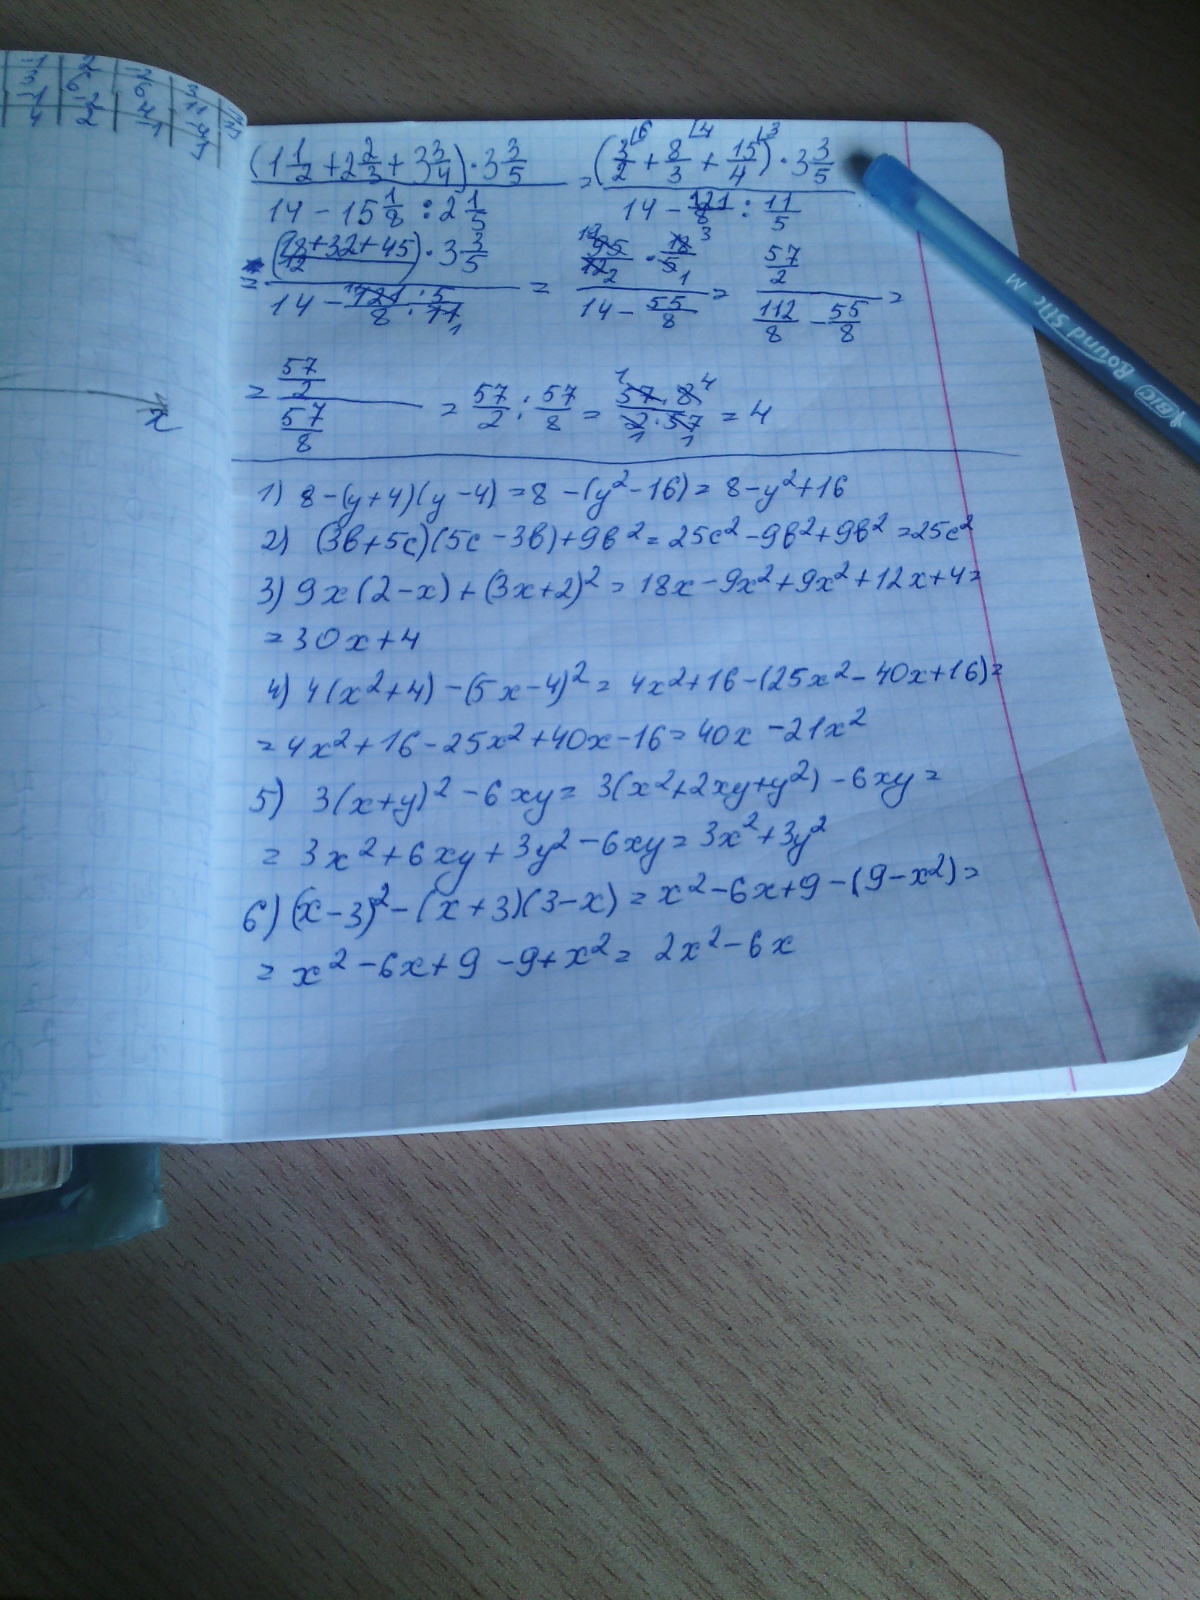 (1 1/2 + 2 2/3 + 3 3/4) · 3 3/5 / 14 - 15 1/8 : 2 1/5 = (3/2 + 8/3 + 15/4) · 3 3/5 / 14 - 121/8 : 11/5
= (18+32+45 / 12) · 3 3/5 / 14 - 121/8 : 5/11 = 95/12 · 18/5 / 14 - 55/8 = 57/2 / 112/8 - 55/8 =
= 57/2 / 57/8 = 57/2 : 57/8 = 57·8 / 2·57 = 4
1) 8-(y+4)(y-4)=8-(y²-16)=8-y²+16
2) (3b+5c)(5c-3b)+9b²=25c²-9b²+9b²=25c²
3) 9x(2-x)+(3x+2)²=18x-9x²+9x²+12x+4=
=30x+4
4) 4(x²+4)-(5x-4)²=4x²+16-(25x²-40x+16)=
=4x²+16-25x²+40x-16=40x-21x²
5) 3(x+y)²-6xy=3(x²+2xy+y²)-6xy=
=3x²+6xy+3y²-6xy=3x²+3y²
6) (x-3)²-(x+3)(3-x)=x²-6x+9-(9-x²)=
=x²-6x+9-9+x²=2x²-6x
x
BIC Round Stic M